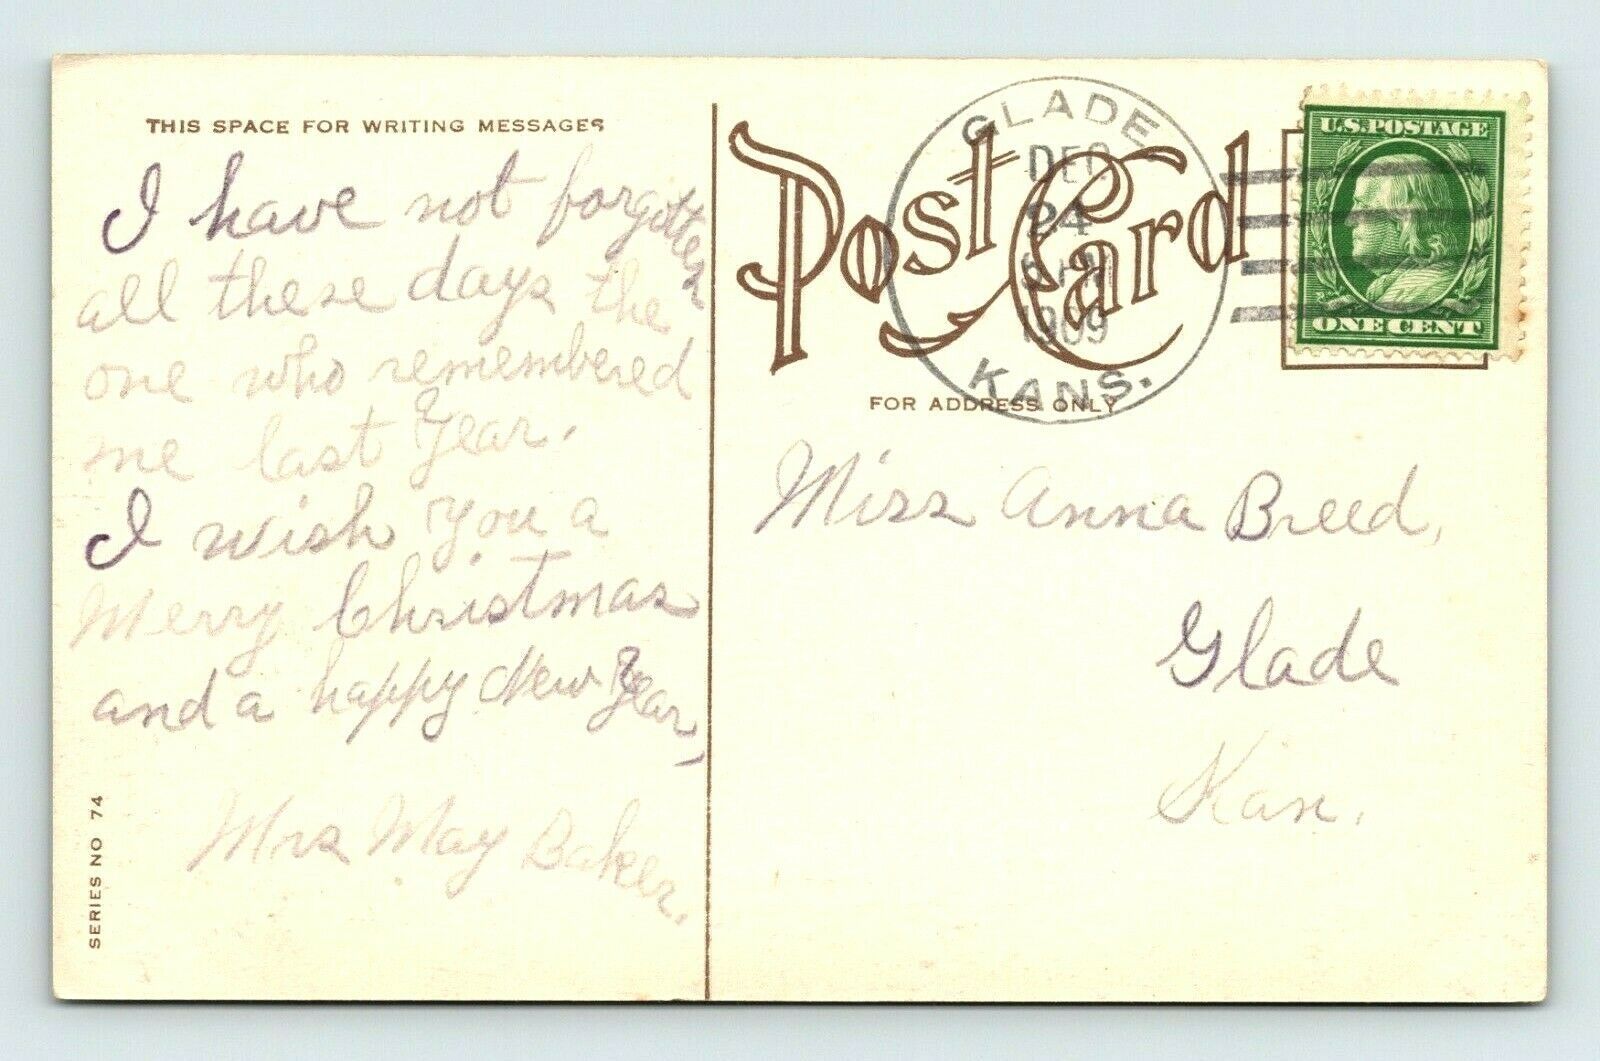 THIS SPACE FOR WRITING MESSAGES
I have not forgotten
all these days the
one who remembered
me last Year.
I wish you a
Merry Christmas
and a happy New Year,
Mrs May Baker.
SERIES NO 74
Post Card
FOR ADDRESS ONLY
GLADE,
DEC
24
1909
KANS.
U.S. POSTAGE
ONE CENT
Miss Anna Breed,
Glade
Kan.